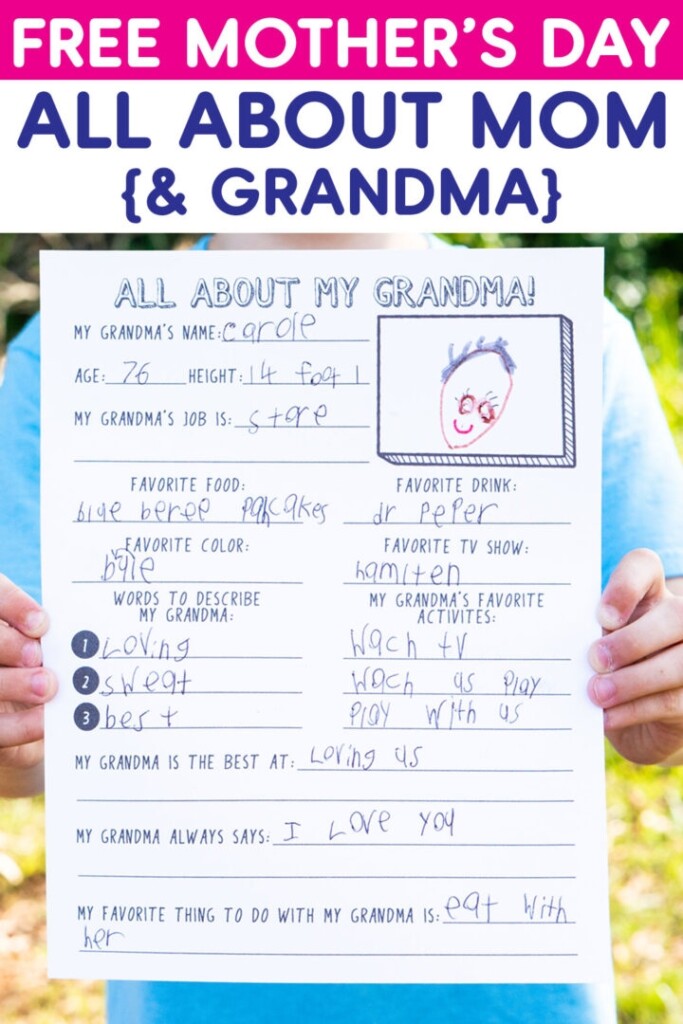 FREE MOTHER'S DAY
ALL ABOUT MOM
{& GRANDMA}
ALL ABOUT MY GRANDMA!
MY GRANDMA'S NAME: carole
AGE: 76 HEIGHT: 14 foot 1
MY GRANDMA'S JOB IS: store
FAVORITE FOOD:
blue beree pancakes
FAVORITE DRINK:
dr peper
FAVORITE COLOR:
blue
FAVORITE TV SHOW:
hamilten
WORDS TO DESCRIBE
MY GRANDMA:
1 Loving
2 sweat
3 best
MY GRANDMA'S FAVORITE
ACTIVITES:
Wach tv
Wach us play
play with us
MY GRANDMA IS THE BEST AT: Loving us
MY GRANDMA ALWAYS SAYS: I Love you
MY FAVORITE THING TO DO WITH MY GRANDMA IS: eat with
her